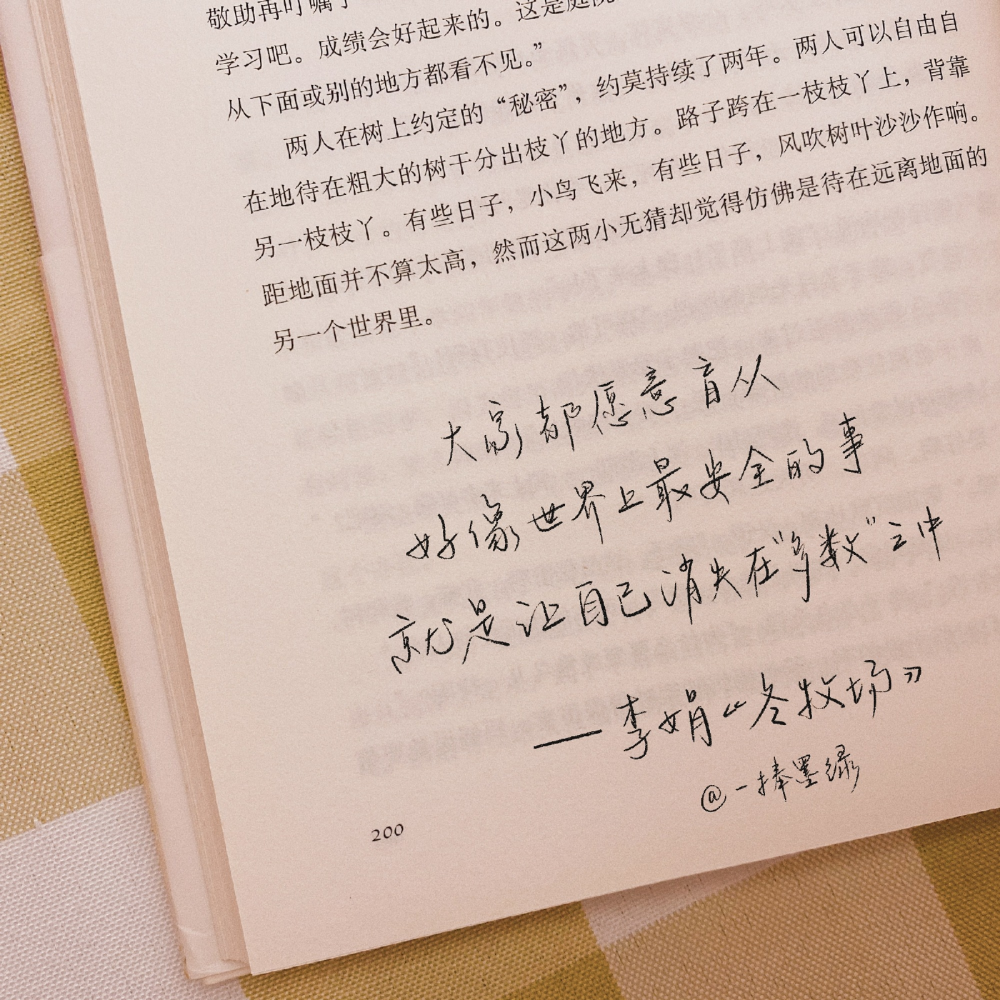 敬助再叮嘱
学习吧。成绩会好起来的。这是庭院
从下面或别的地方都看不见。”
两人在树上约定的“秘密”，约莫持续了两年。两人可以自由自
在地待在粗大的树干分出枝丫的地方。路子跨在一枝枝丫上，背靠
另一枝枝丫。有些日子，小鸟飞来，有些日子，风吹树叶沙沙作响。
距地面并不算太高，然而这两小无猜却觉得仿佛是待在远离地面的
另一个世界里。
大家都愿意盲从
好像世界上最安全的事
就是让自己消失在“多数”之中
——李娟《冬牧场》
@一捧墨绿
200